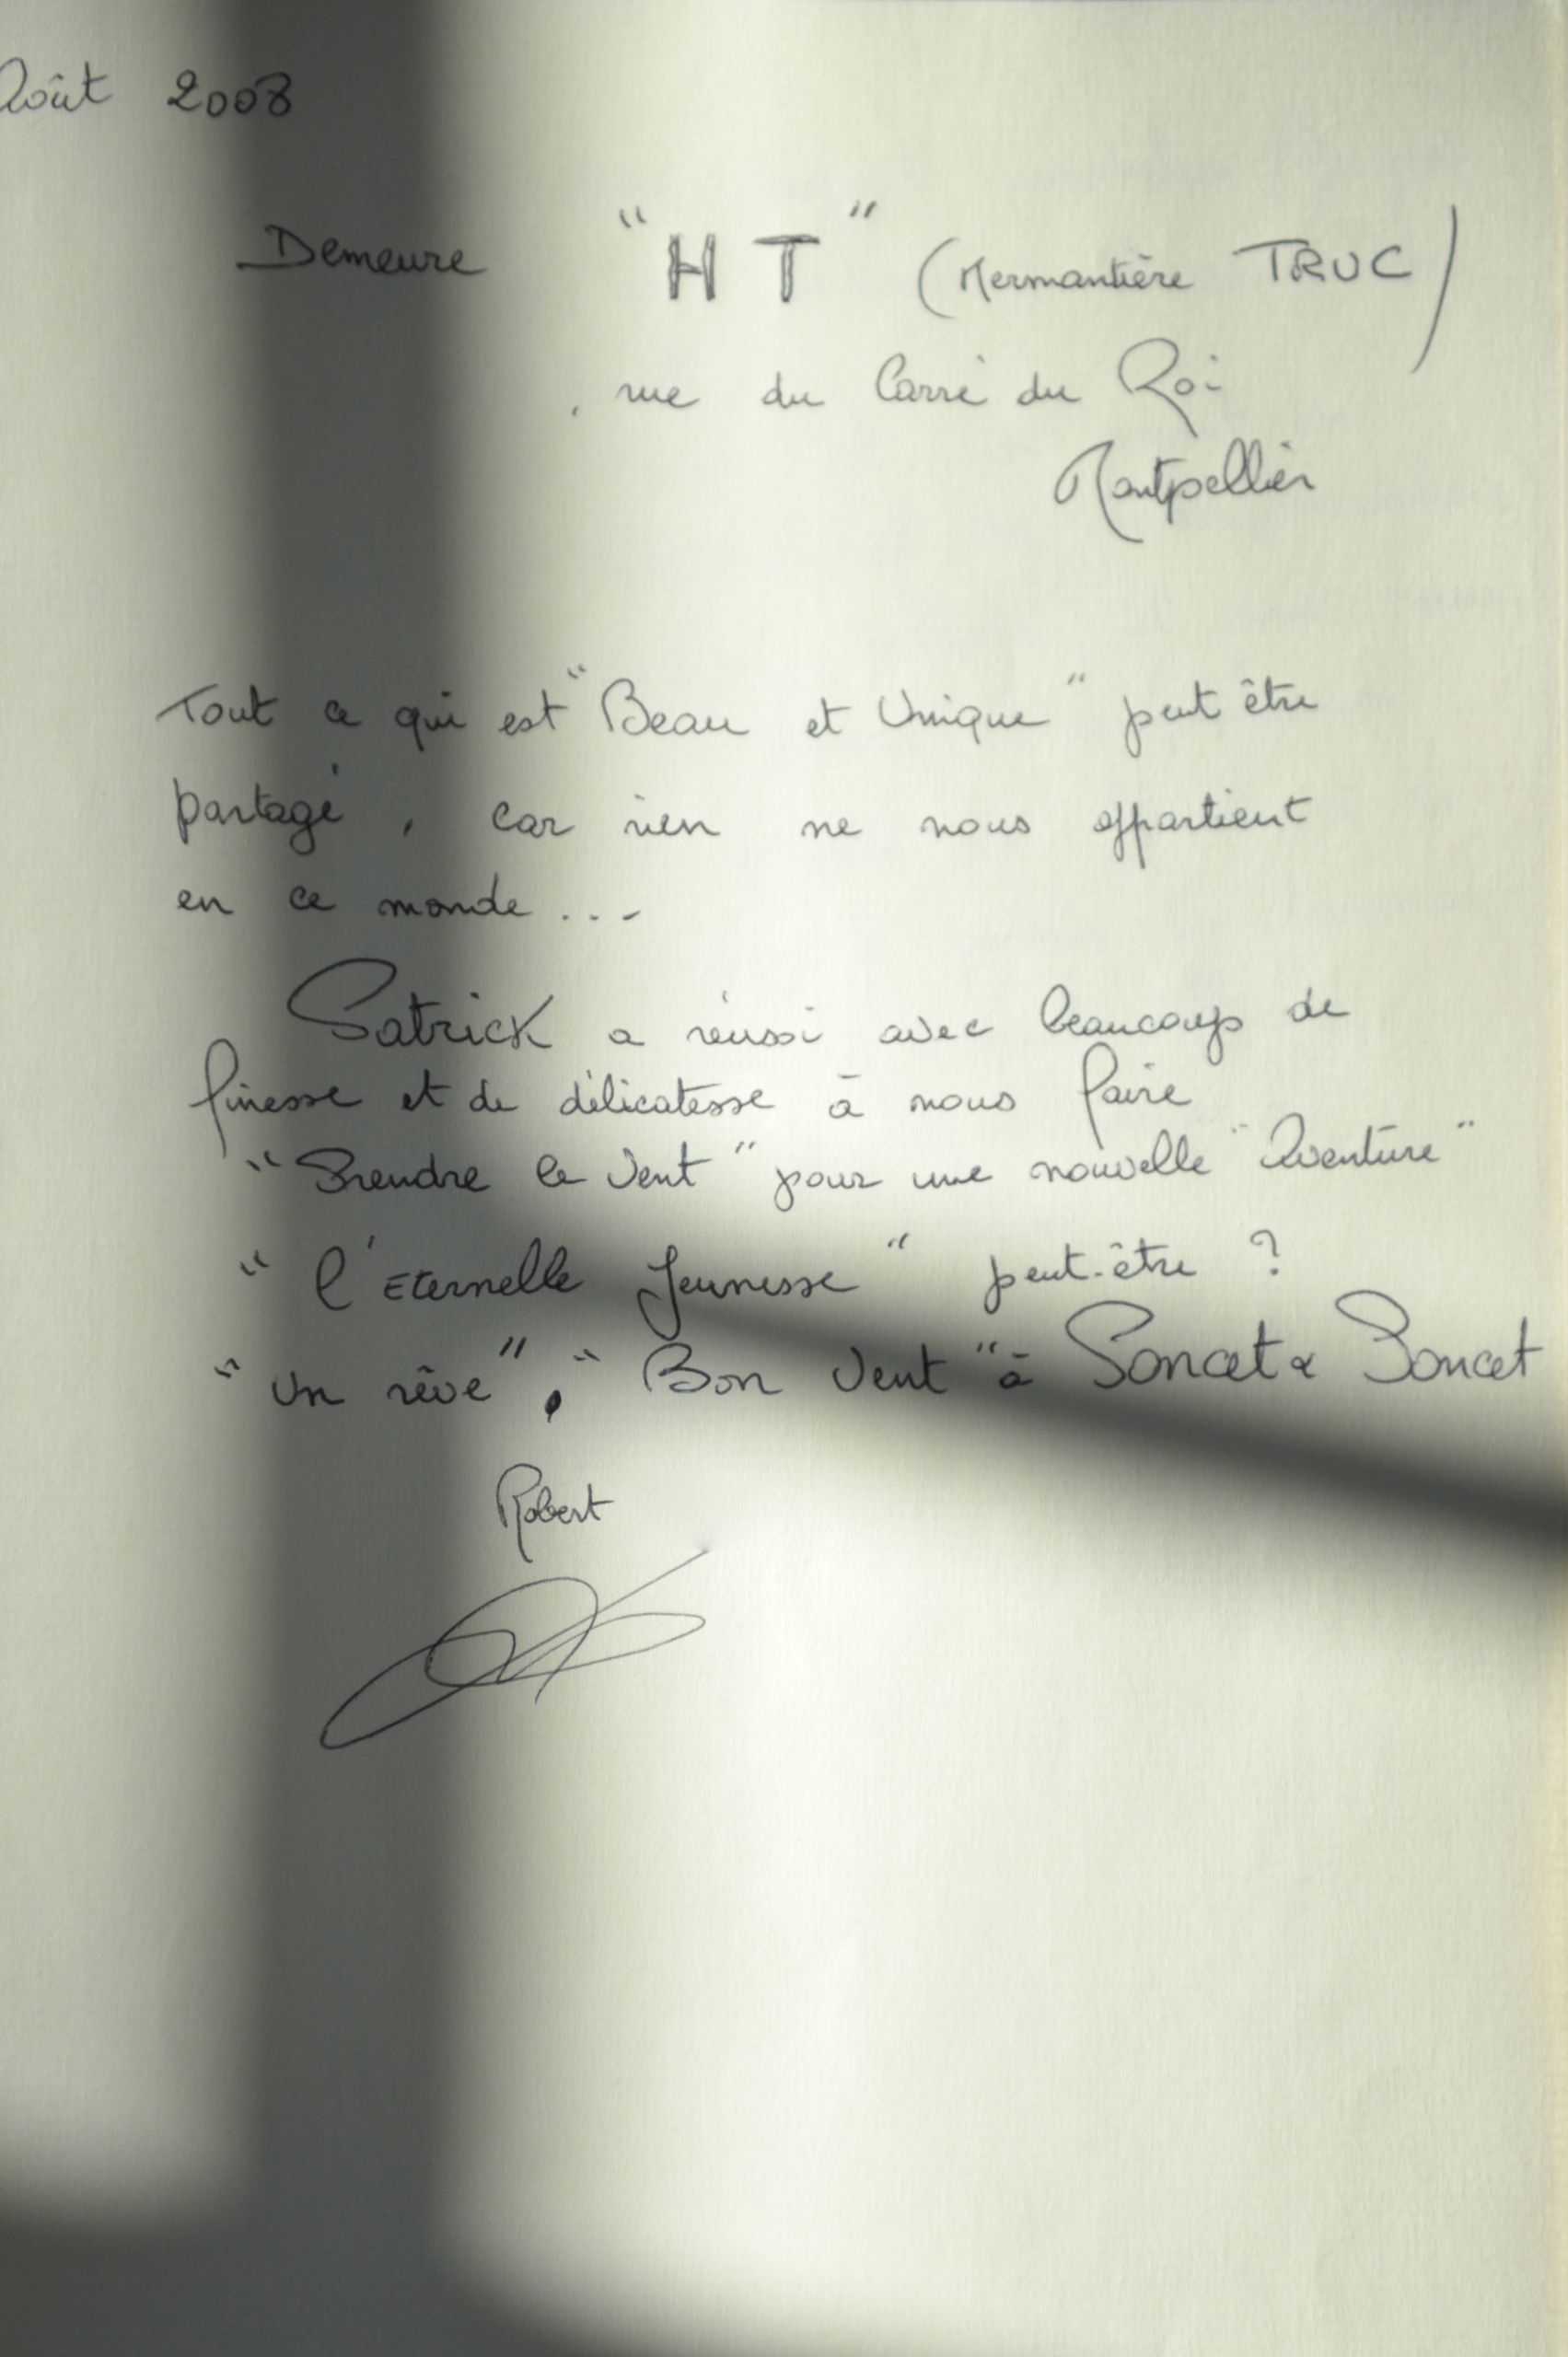 Août 2008
Demeure "HT" (Mermantière TRUC)
, rue du Carré du Roi
Montpellier
Tout ce qui est "Beau et Unique" peut être
partagé, car rien ne nous appartient
en ce monde...
Patrick a réussi avec beaucoup de
finesse et de délicatesse à nous faire
"Prendre le Vent" pour une nouvelle "Aventure"
"l'Eternelle Jeunesse" peut-être ?
"Un rêve", "Bon Vent" à Poncet & Poncet
Robert